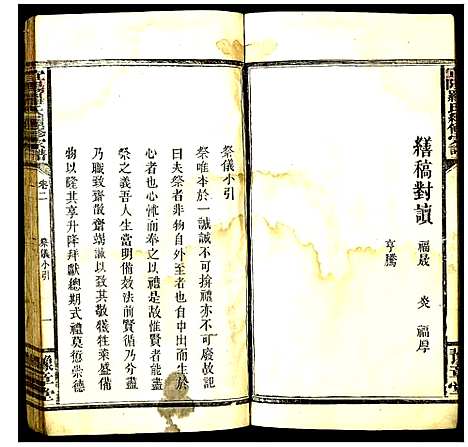 繕稿對讀
福晟 炎 福厚
亨騰
豫章堂
卷二
祭儀小引
一
豫章堂
祭儀小引
祭唯本於一誠誠不可揜禮亦不可廢故記
曰夫祭者非物自外至者也自中出而生於
心者也心怵而奉之以禮是故惟賢者能盡
祭之義吾人生當明備效法前賢循乃分盡
乃職致齋散齋端誠以致其敬犧牲粢盛備
物以隆其享升降拜獻總期式禮莫愆崇德